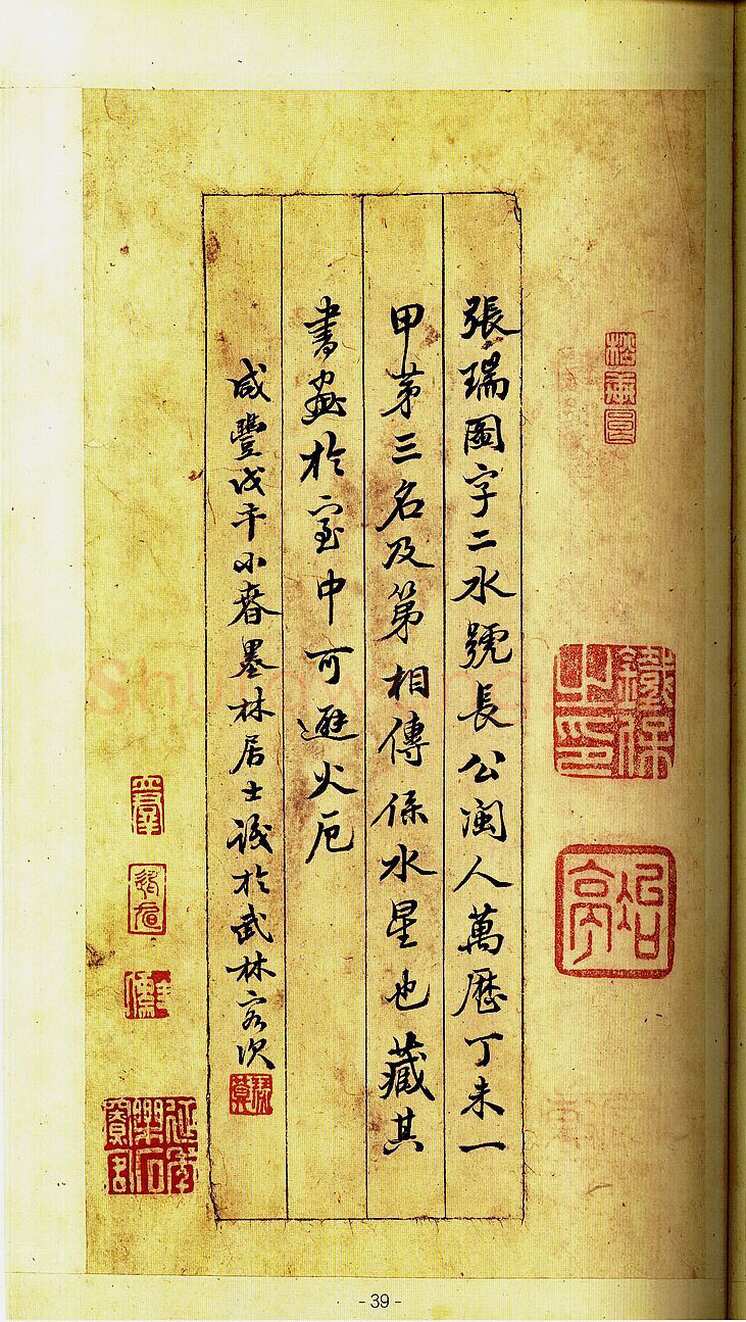 張瑞圖字二水號長公閩人萬歷丁未一
甲茅三名及第相傳係水星也藏其
書畫於室中可避火厄
咸豐戊午小春墨林居士識於武林客次
鐵保之印
- 39 -